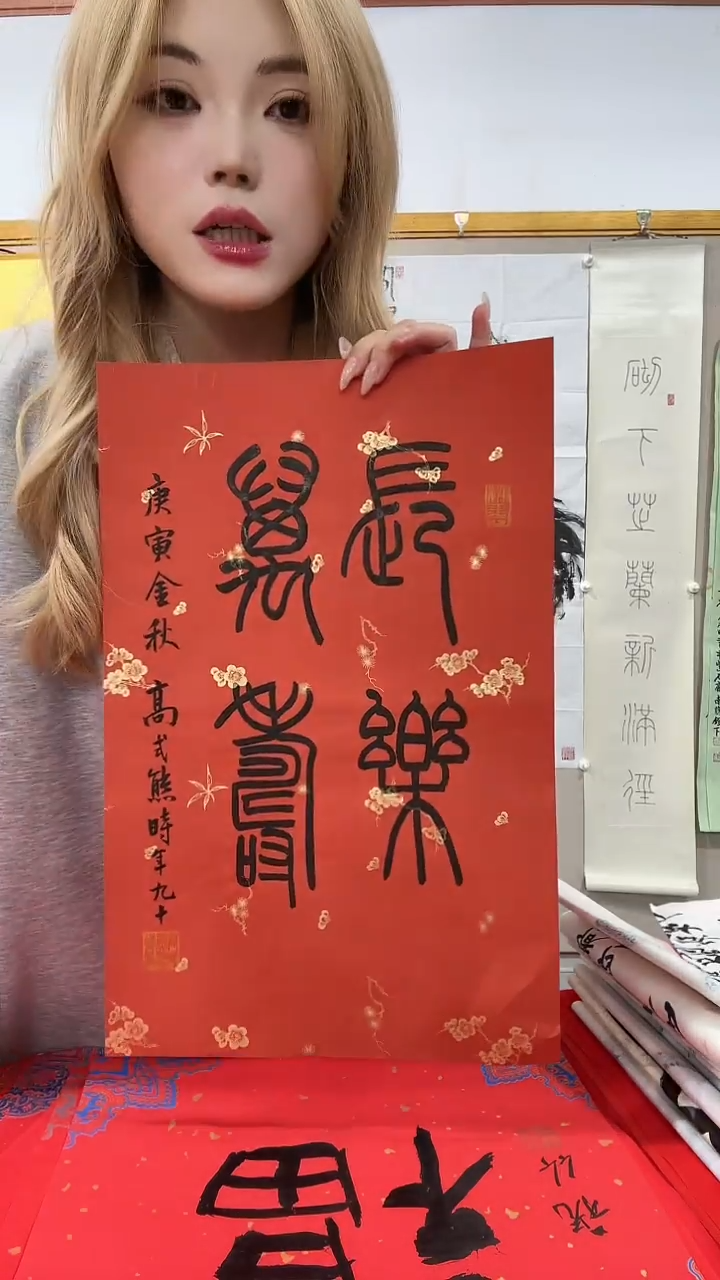 長樂
萬壽
庚寅金秋 高式熊時年九十
砌下芷蘭新滿徑